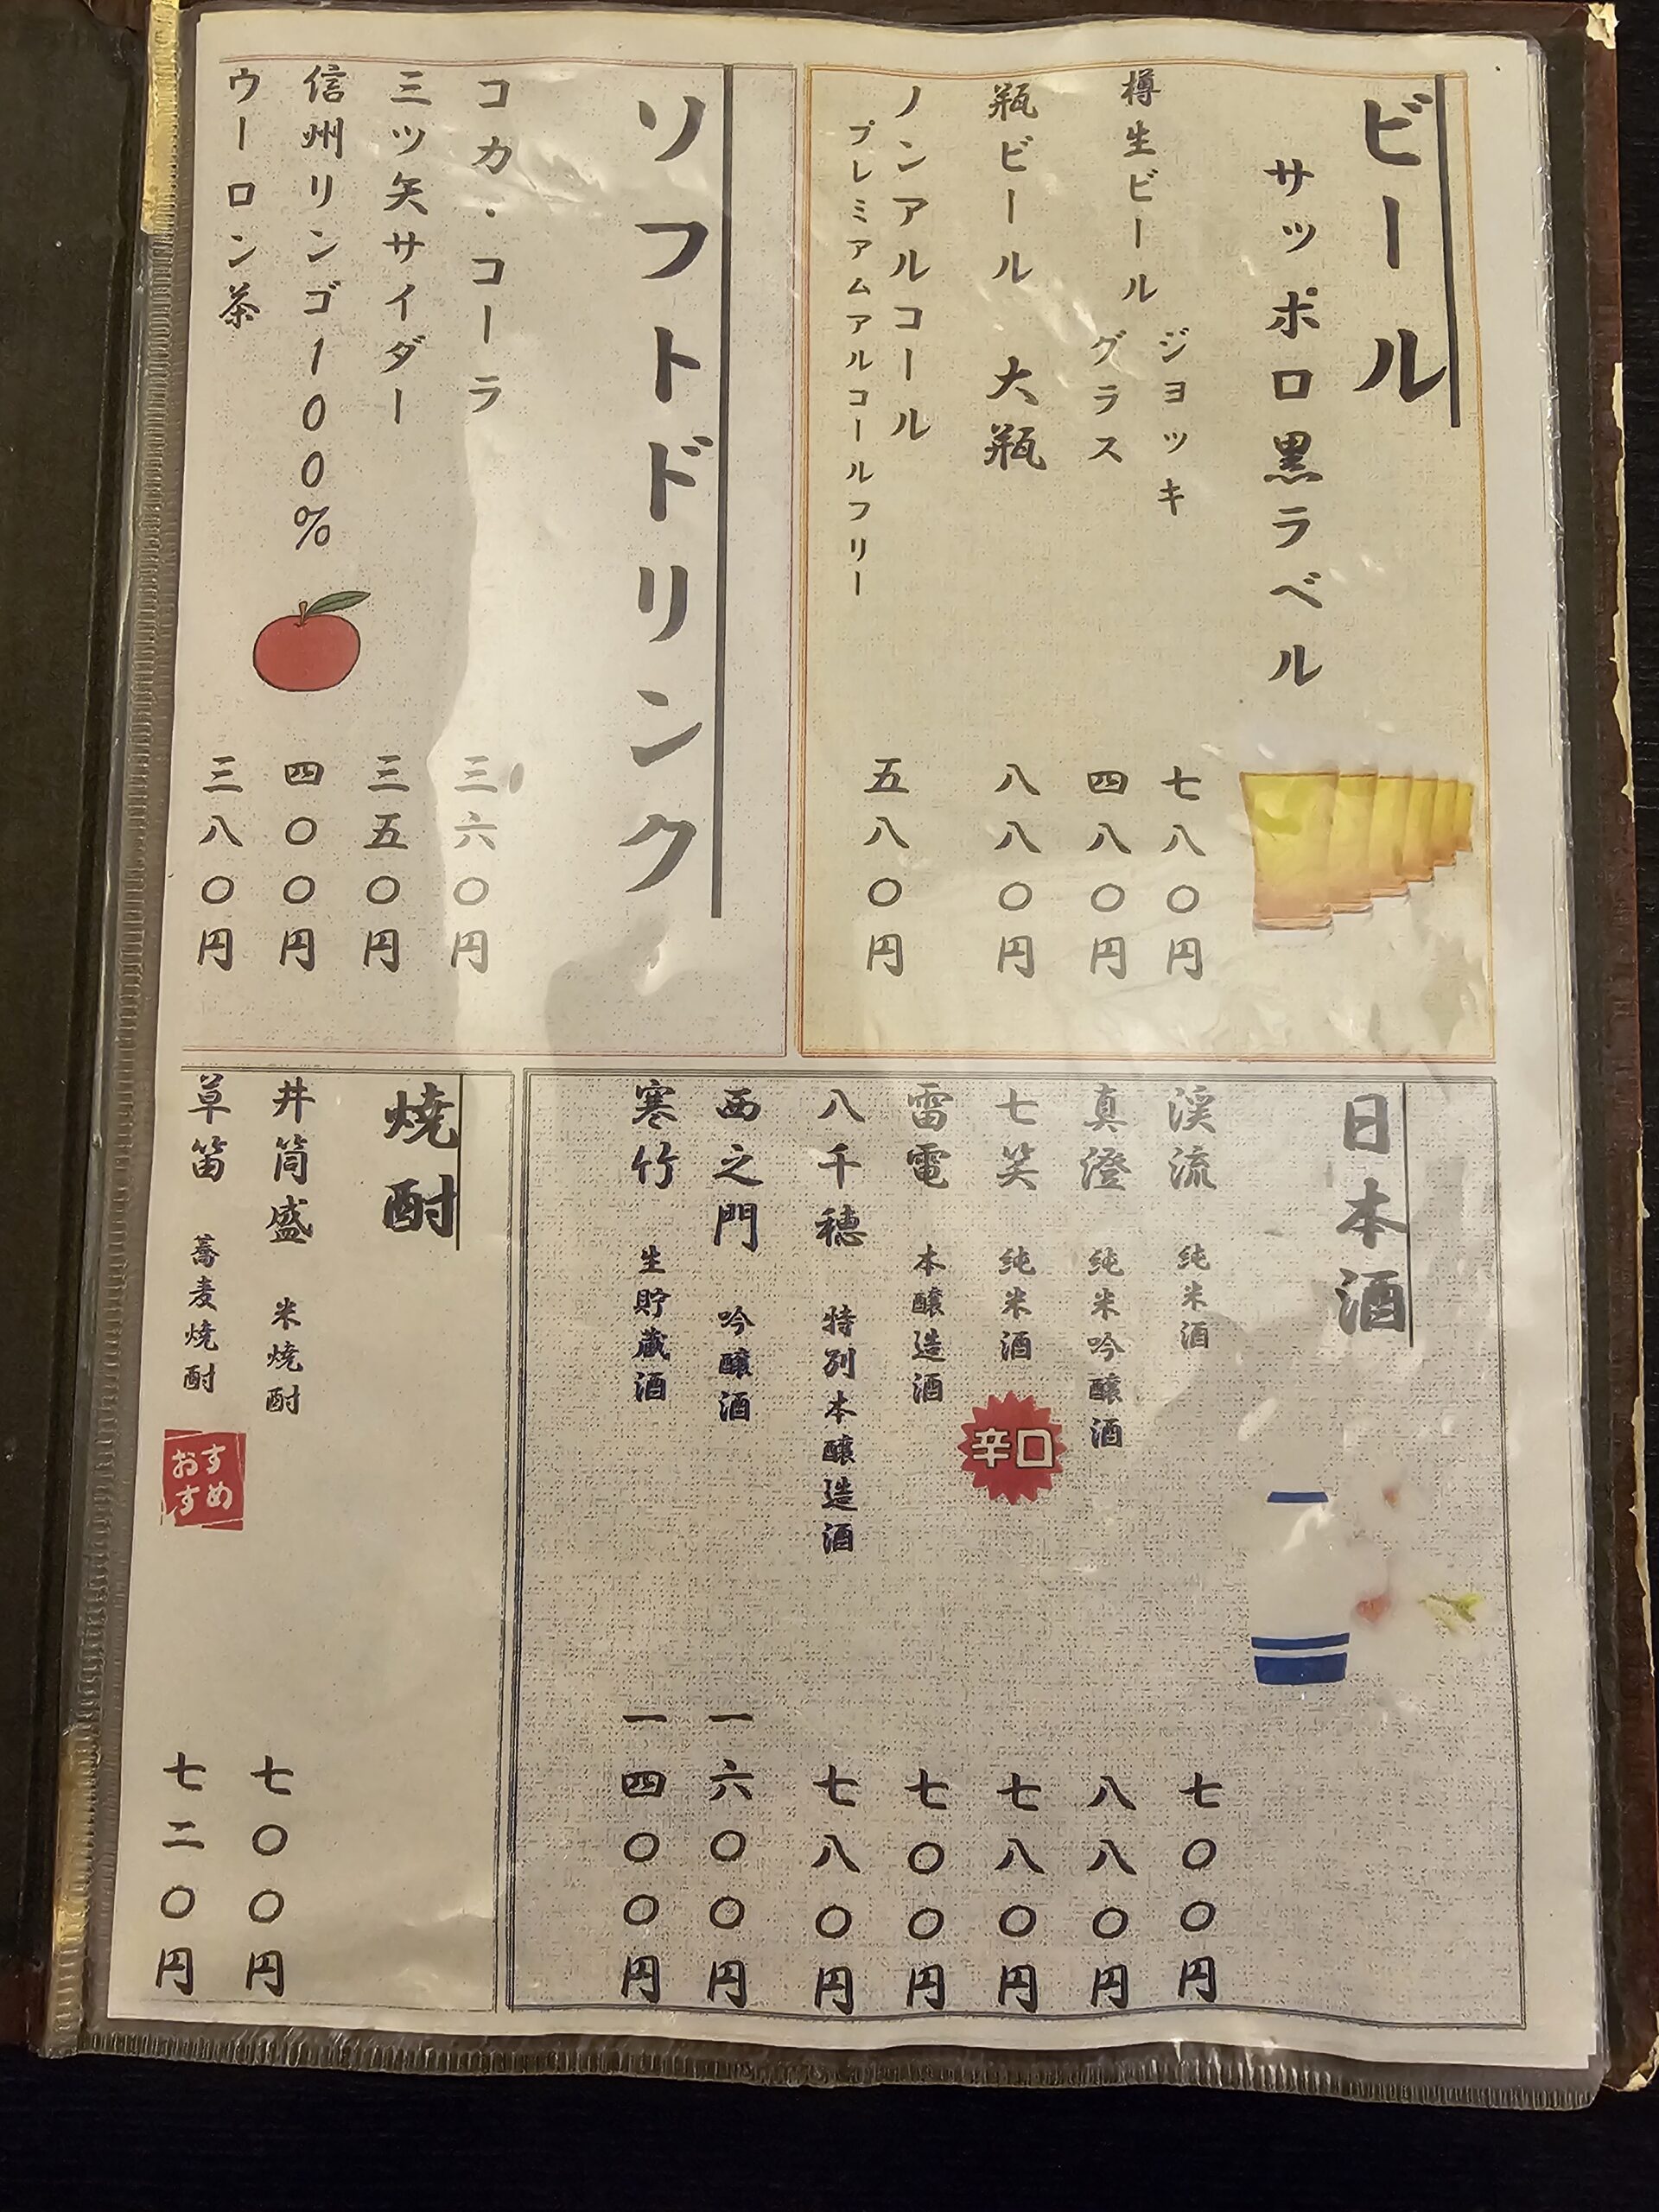 ビール
サッポロ黒ラベル
樽生ビール
ジョッキ
七八〇円
グラス
四八〇円
瓶ビール 大瓶
八八〇円
ノンアルコール
プレミアムアルコールフリー
五八〇円
ソフトドリンク
コカ・コーラ
三六〇円
三ツ矢サイダー
三五〇円
信州リンゴ100%
四〇〇円
ウーロン茶
三八〇円
日本酒
渓流 純米酒
七〇〇円
真澄 純米吟醸酒
八八〇円
七笑 純米酒
辛口
七八〇円
雷電 本醸造酒
七〇〇円
八千穂 特別本醸造酒
七八〇円
西之門 吟醸酒
一六〇〇円
寒竹 生貯蔵酒
一四〇〇円
焼酎
井筒盛 米焼酎
七〇〇円
草笛 蕎麦焼酎
おすすめ
七二〇円